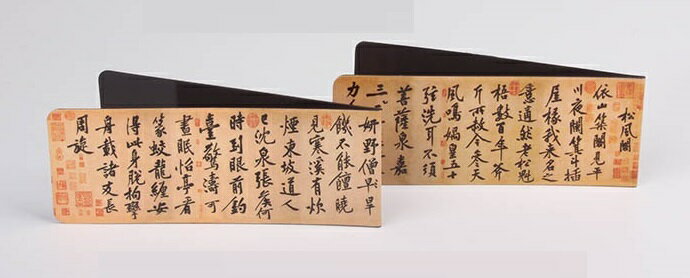 松風閣
依山築閣見平
川夜闌箕斗插
屋椽我來名之
意適然老松魁
梧數百年斧
斤所赦今參天
風鳴媧皇五十
弦洗耳不須
菩薩泉嘉
三
力
妍野僧早旱
饑不能饘曉
見寒溪有炊
煙東坡道人
已沈泉張侯何
時到眼前釣
臺驚濤可
晝眠怡亭看
篆蛟龍纏安
得此身脫拘攣
舟載諸友長
周旋